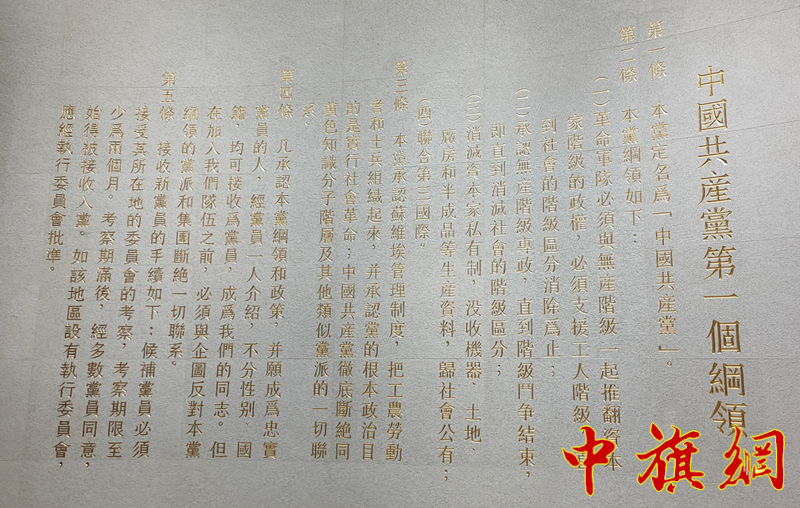 中國共産黨第一個綱領
第一條　本黨定名爲「中國共産黨」。
第二條　本黨綱領如下：
（一）革命軍隊必須與無産階級一起推翻資本
家階級的政權，必須支援工人階級，直
到社會的階級區分消除爲止；
（二）承認無産階級專政，直到階級鬥争結束，
即直到消滅社會的階級區分；
（三）消滅資本家私有制，没收機器、土地、
廠房和半成品等生産資料，歸社會公有；
（四）聯合第三國際。
第三條　本黨承認蘇維埃管理制度，把工農勞動
者和士兵組織起來，并承認黨的根本政治目
的是實行社會革命；中國共産黨徹底斷絶同
黄色知識分子階層及其他類似黨派的一切聯
系。
第四條　凡承認本黨綱領和政策，并願成爲忠實
黨員的人，經黨員一人介绍，不分性别、國
籍，均可接收爲黨員，成爲我們的同志。但
在加入我們隊伍之前，必須與企圖反對本黨
綱領的黨派和集團斷絶一切聯系。
第五條　接收新黨員的手續如下：候補黨員必須
接受其所在地的委員會的考察，考察期限至
少爲兩個月。考察期滿後，經多數黨員同意，
始得被接收入黨。如該地區設有執行委員會，
應經執行委員會批准。
中旗網